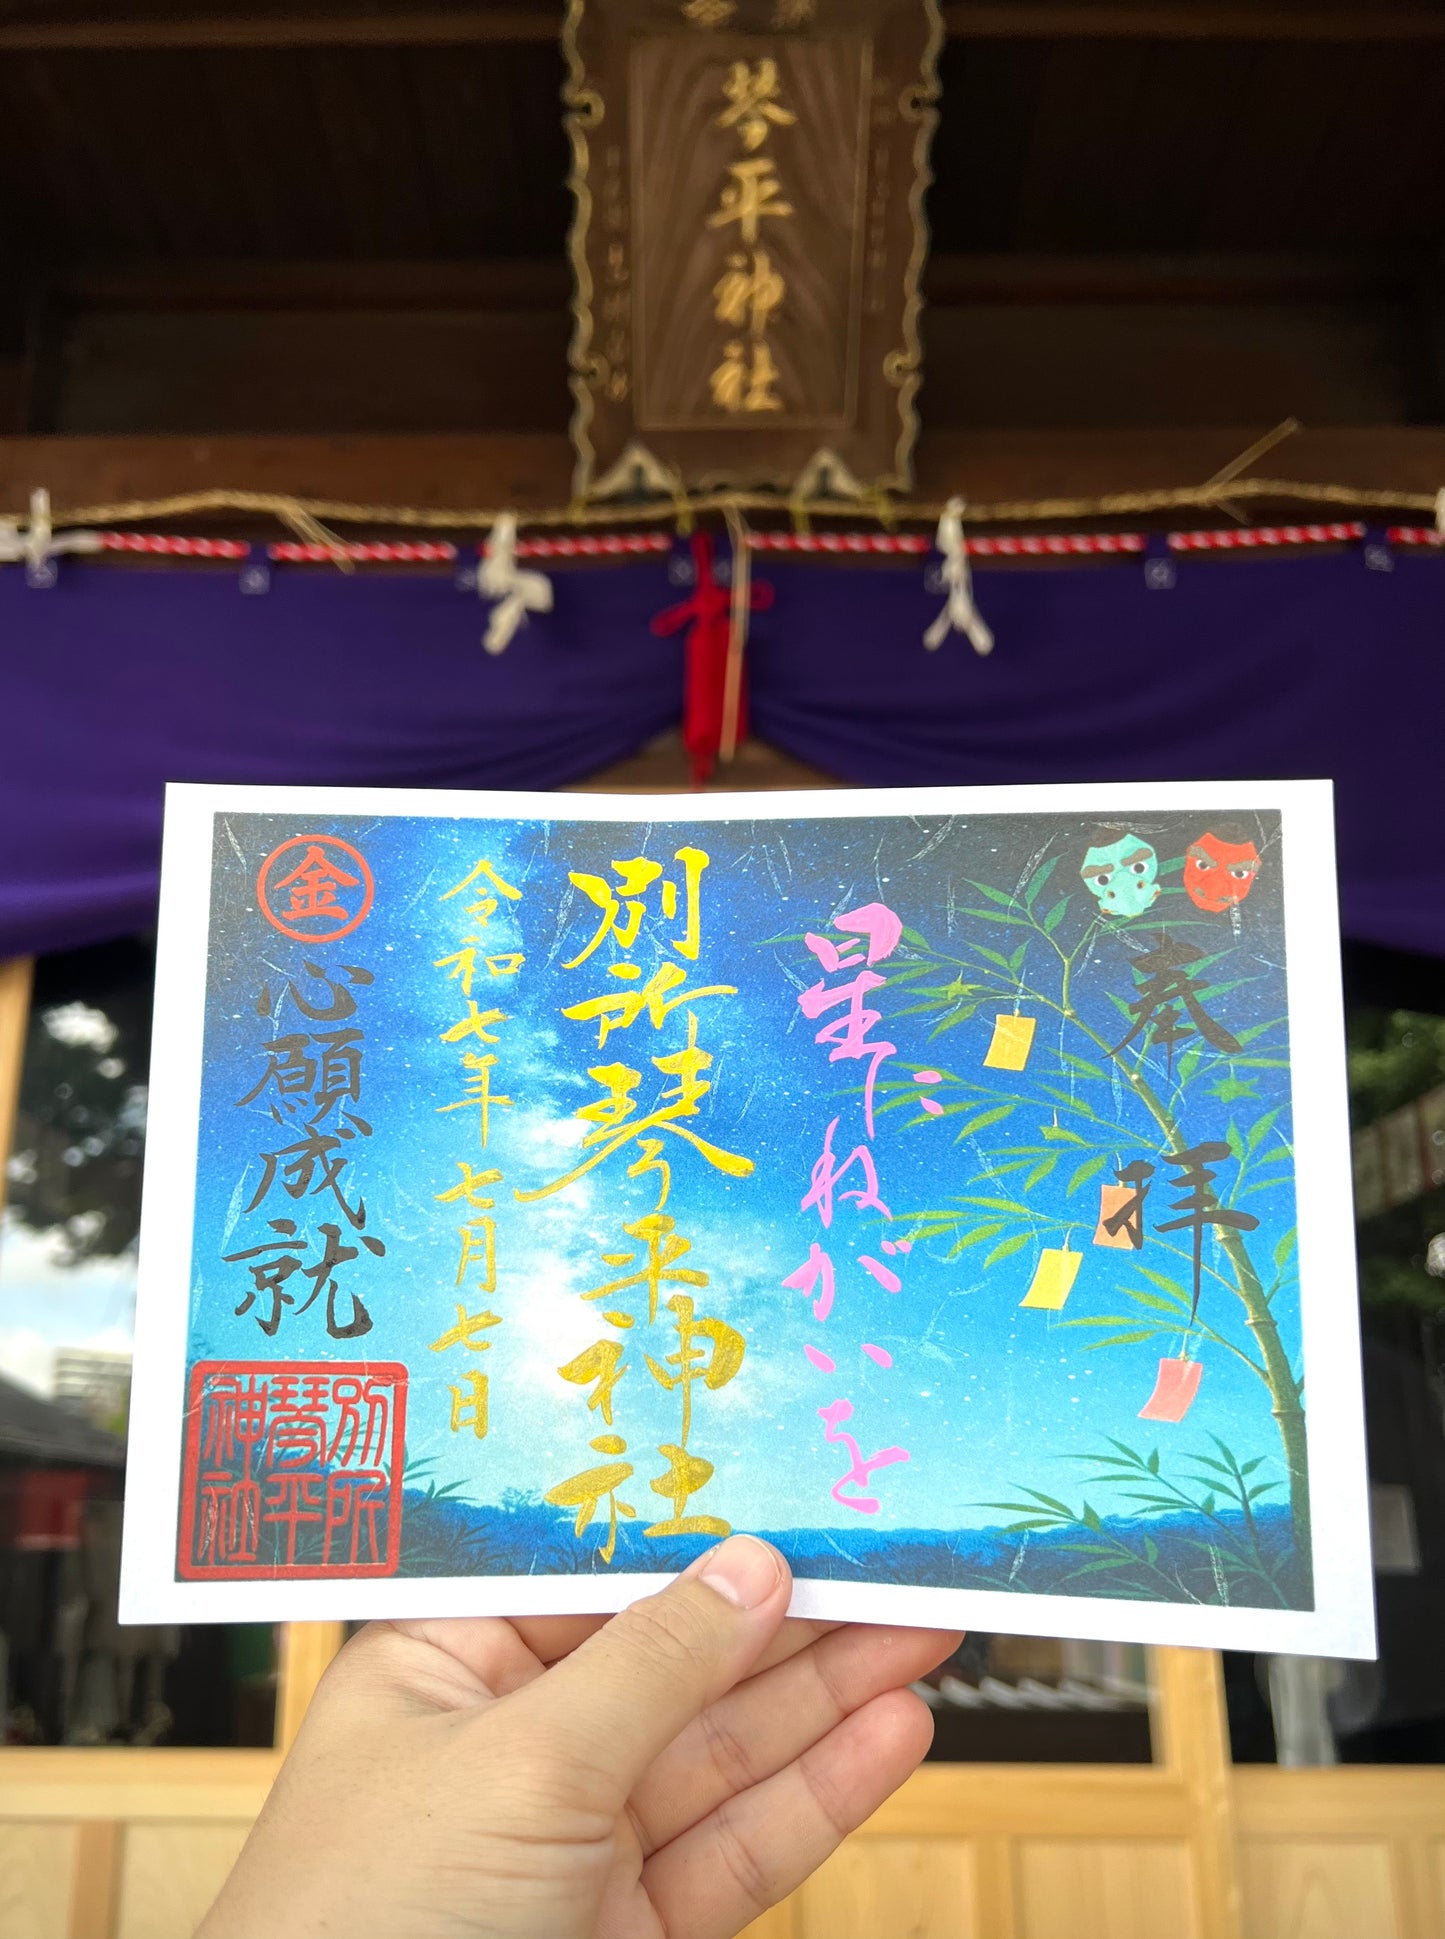 琴平神社
奉拝
星にねがいを
別所琴平神社
令和七年七月七日
金
心願成就
別所
琴平
神社